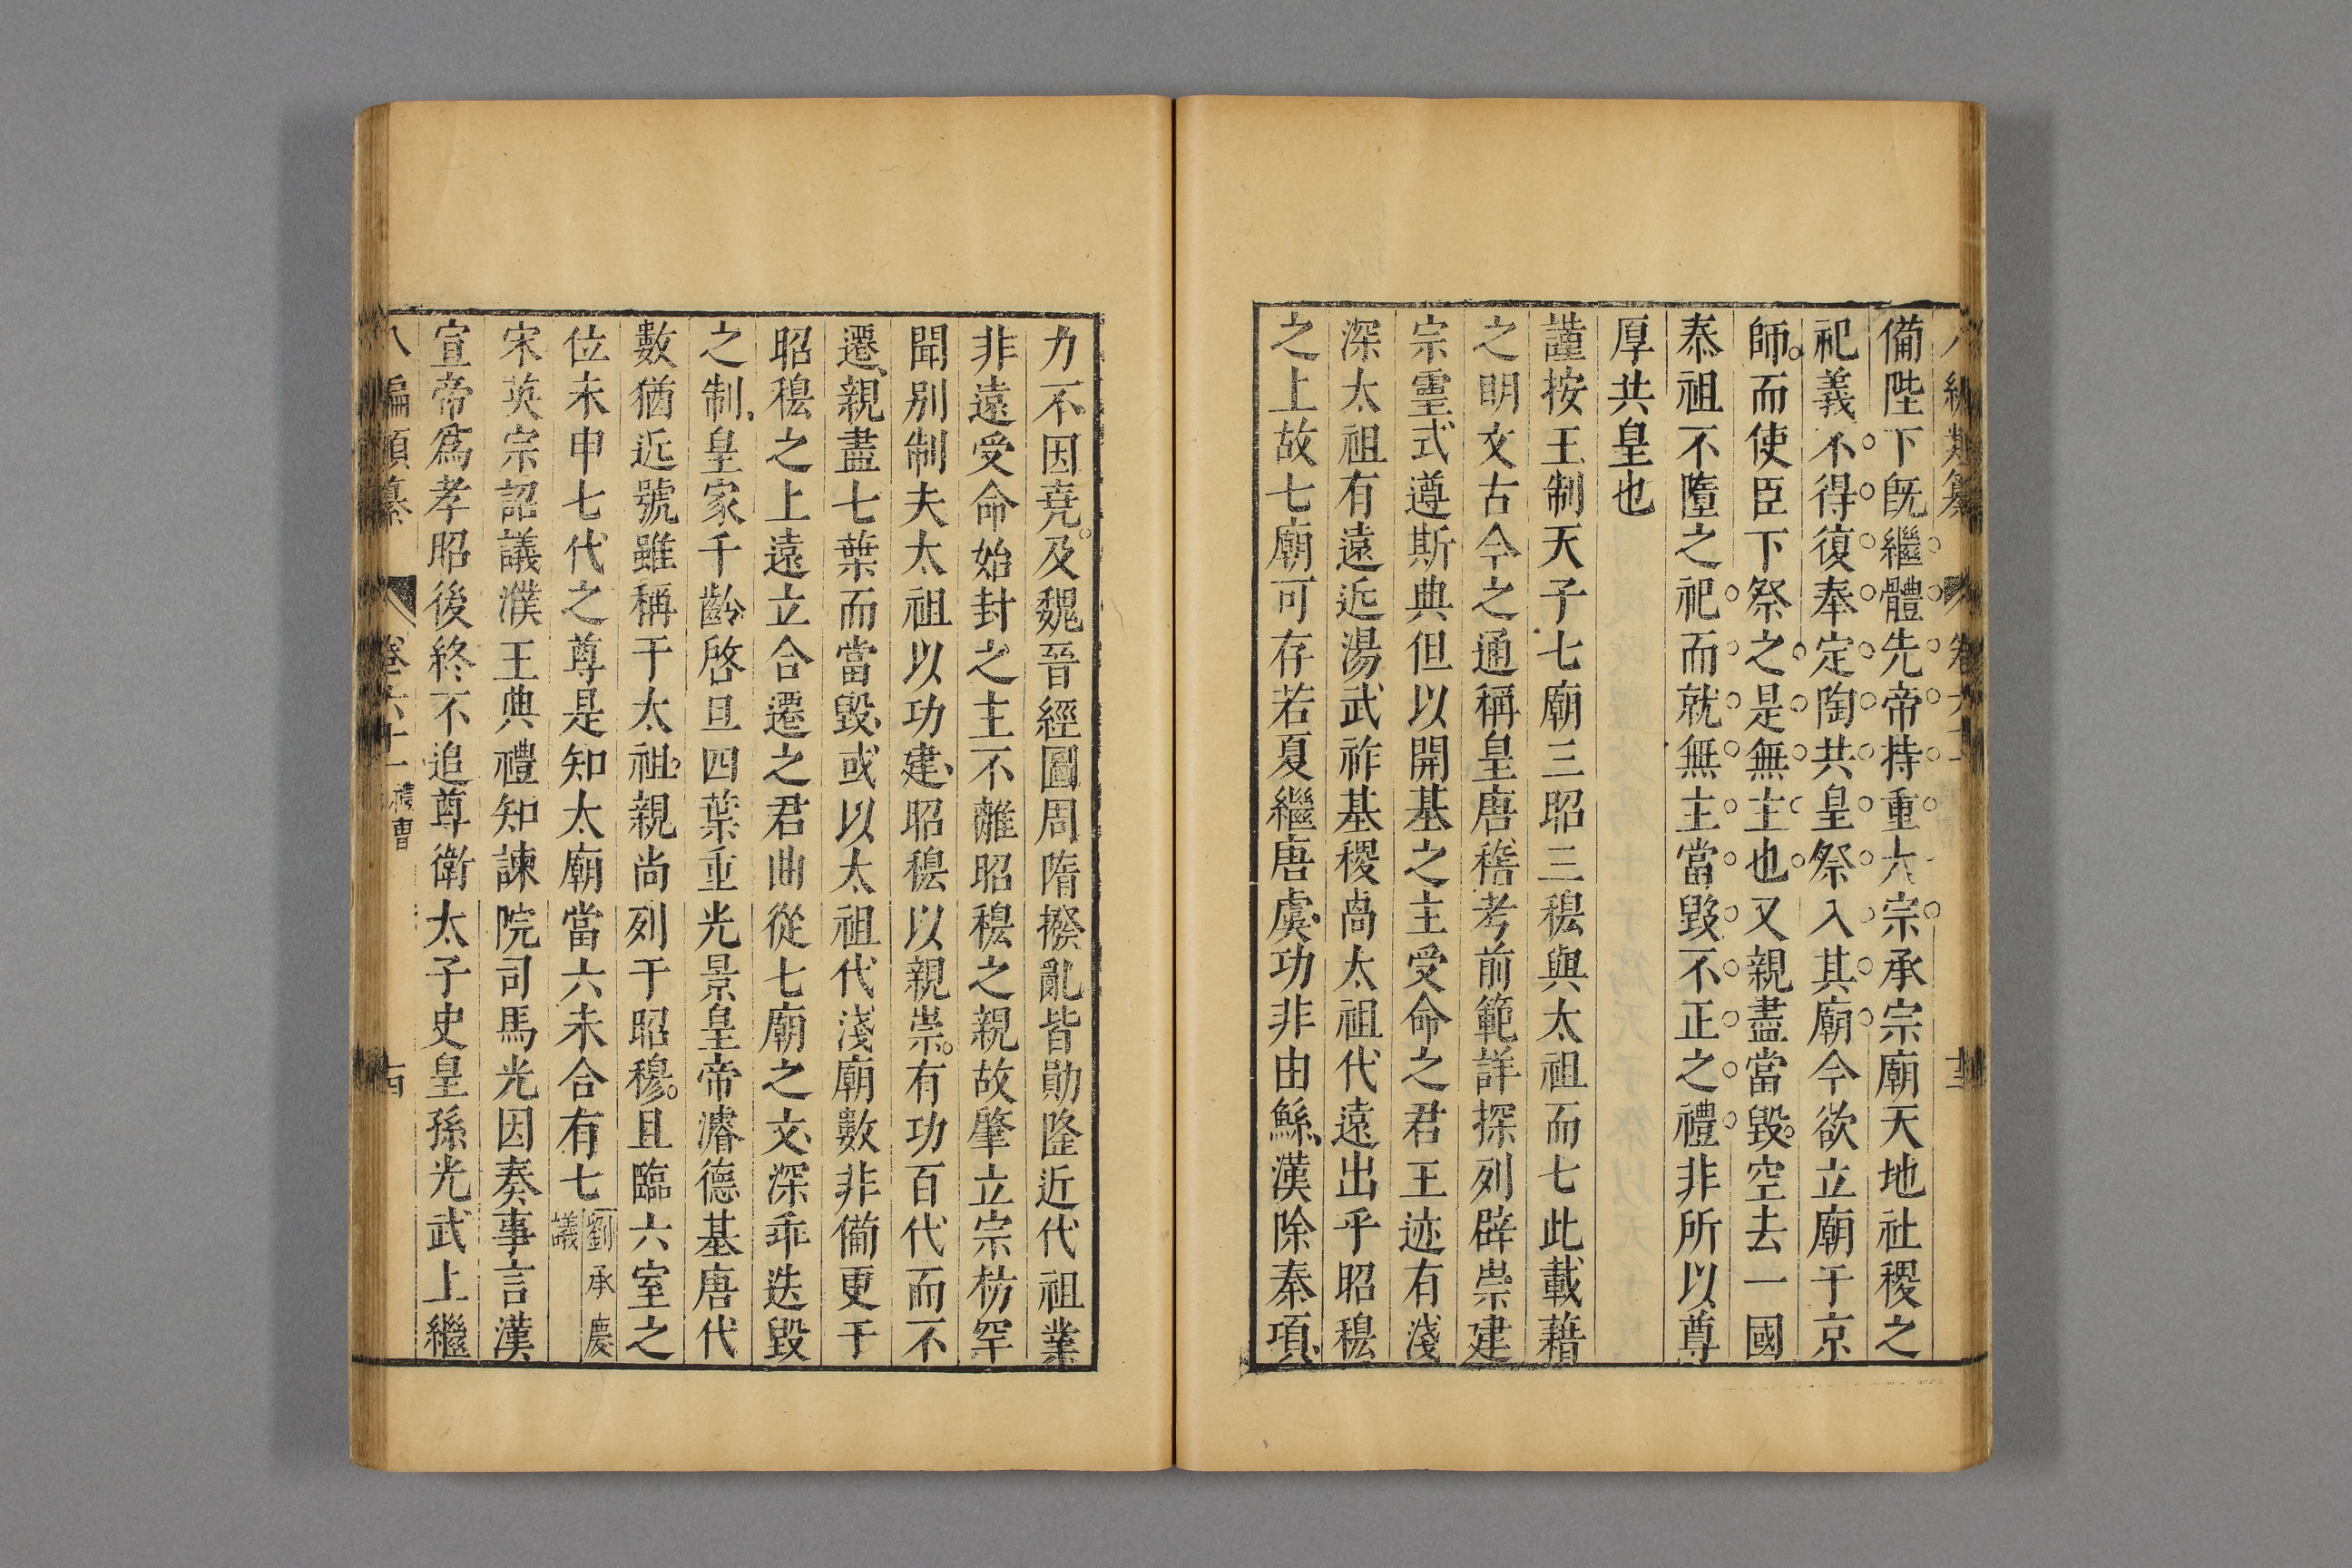 備陛下旣繼體先帝持重大宗承宗廟天地社稷之
祀義不得復奉定陶共皇祭入其廟今欲立廟于京
師而使臣下祭之是無主也又親盡當毀空去一國
泰祖不墮之祀而就無主當毀不正之禮非所以尊
厚共皇也
謹按王制天子七廟三昭三穆與太祖而七此載藉
之明文古今之通稱皇唐稽考前範詳採列辟崇建
宗靈式遵斯典但以開基之主受命之君王迹有淺
深太祖有遠近湯武祚基稷卨太祖代遠出乎昭穆
之上故七廟可存若夏繼唐虞功非由鯀漢除秦項
力不因堯及魏晉經圖周隋撥亂皆勛隆近代祖業
非遠受命始封之主不離昭穆之親故肇立宗祊罕
聞別制夫太祖以功建昭穆以親崇有功百代而不
遷親盡七葉而當毀或以太祖代淺廟數非備更于
昭穆之上遠立合遷之君曲從七廟之文深乖迭毀
之制皇家千齡啓旦四葉重光景皇帝濬德基唐代
數猶近號雖稱于太祖親尚列于昭穆且臨六室之
位未申七代之尊是知太廟當六未合有七劉承慶議
宋英宗詔議濮王典禮知諫院司馬光因奏事言漢
宣帝爲孝昭後終不追尊衛太子史皇孫光武上繼
八編類纂 卷六十一 禮曹 十四